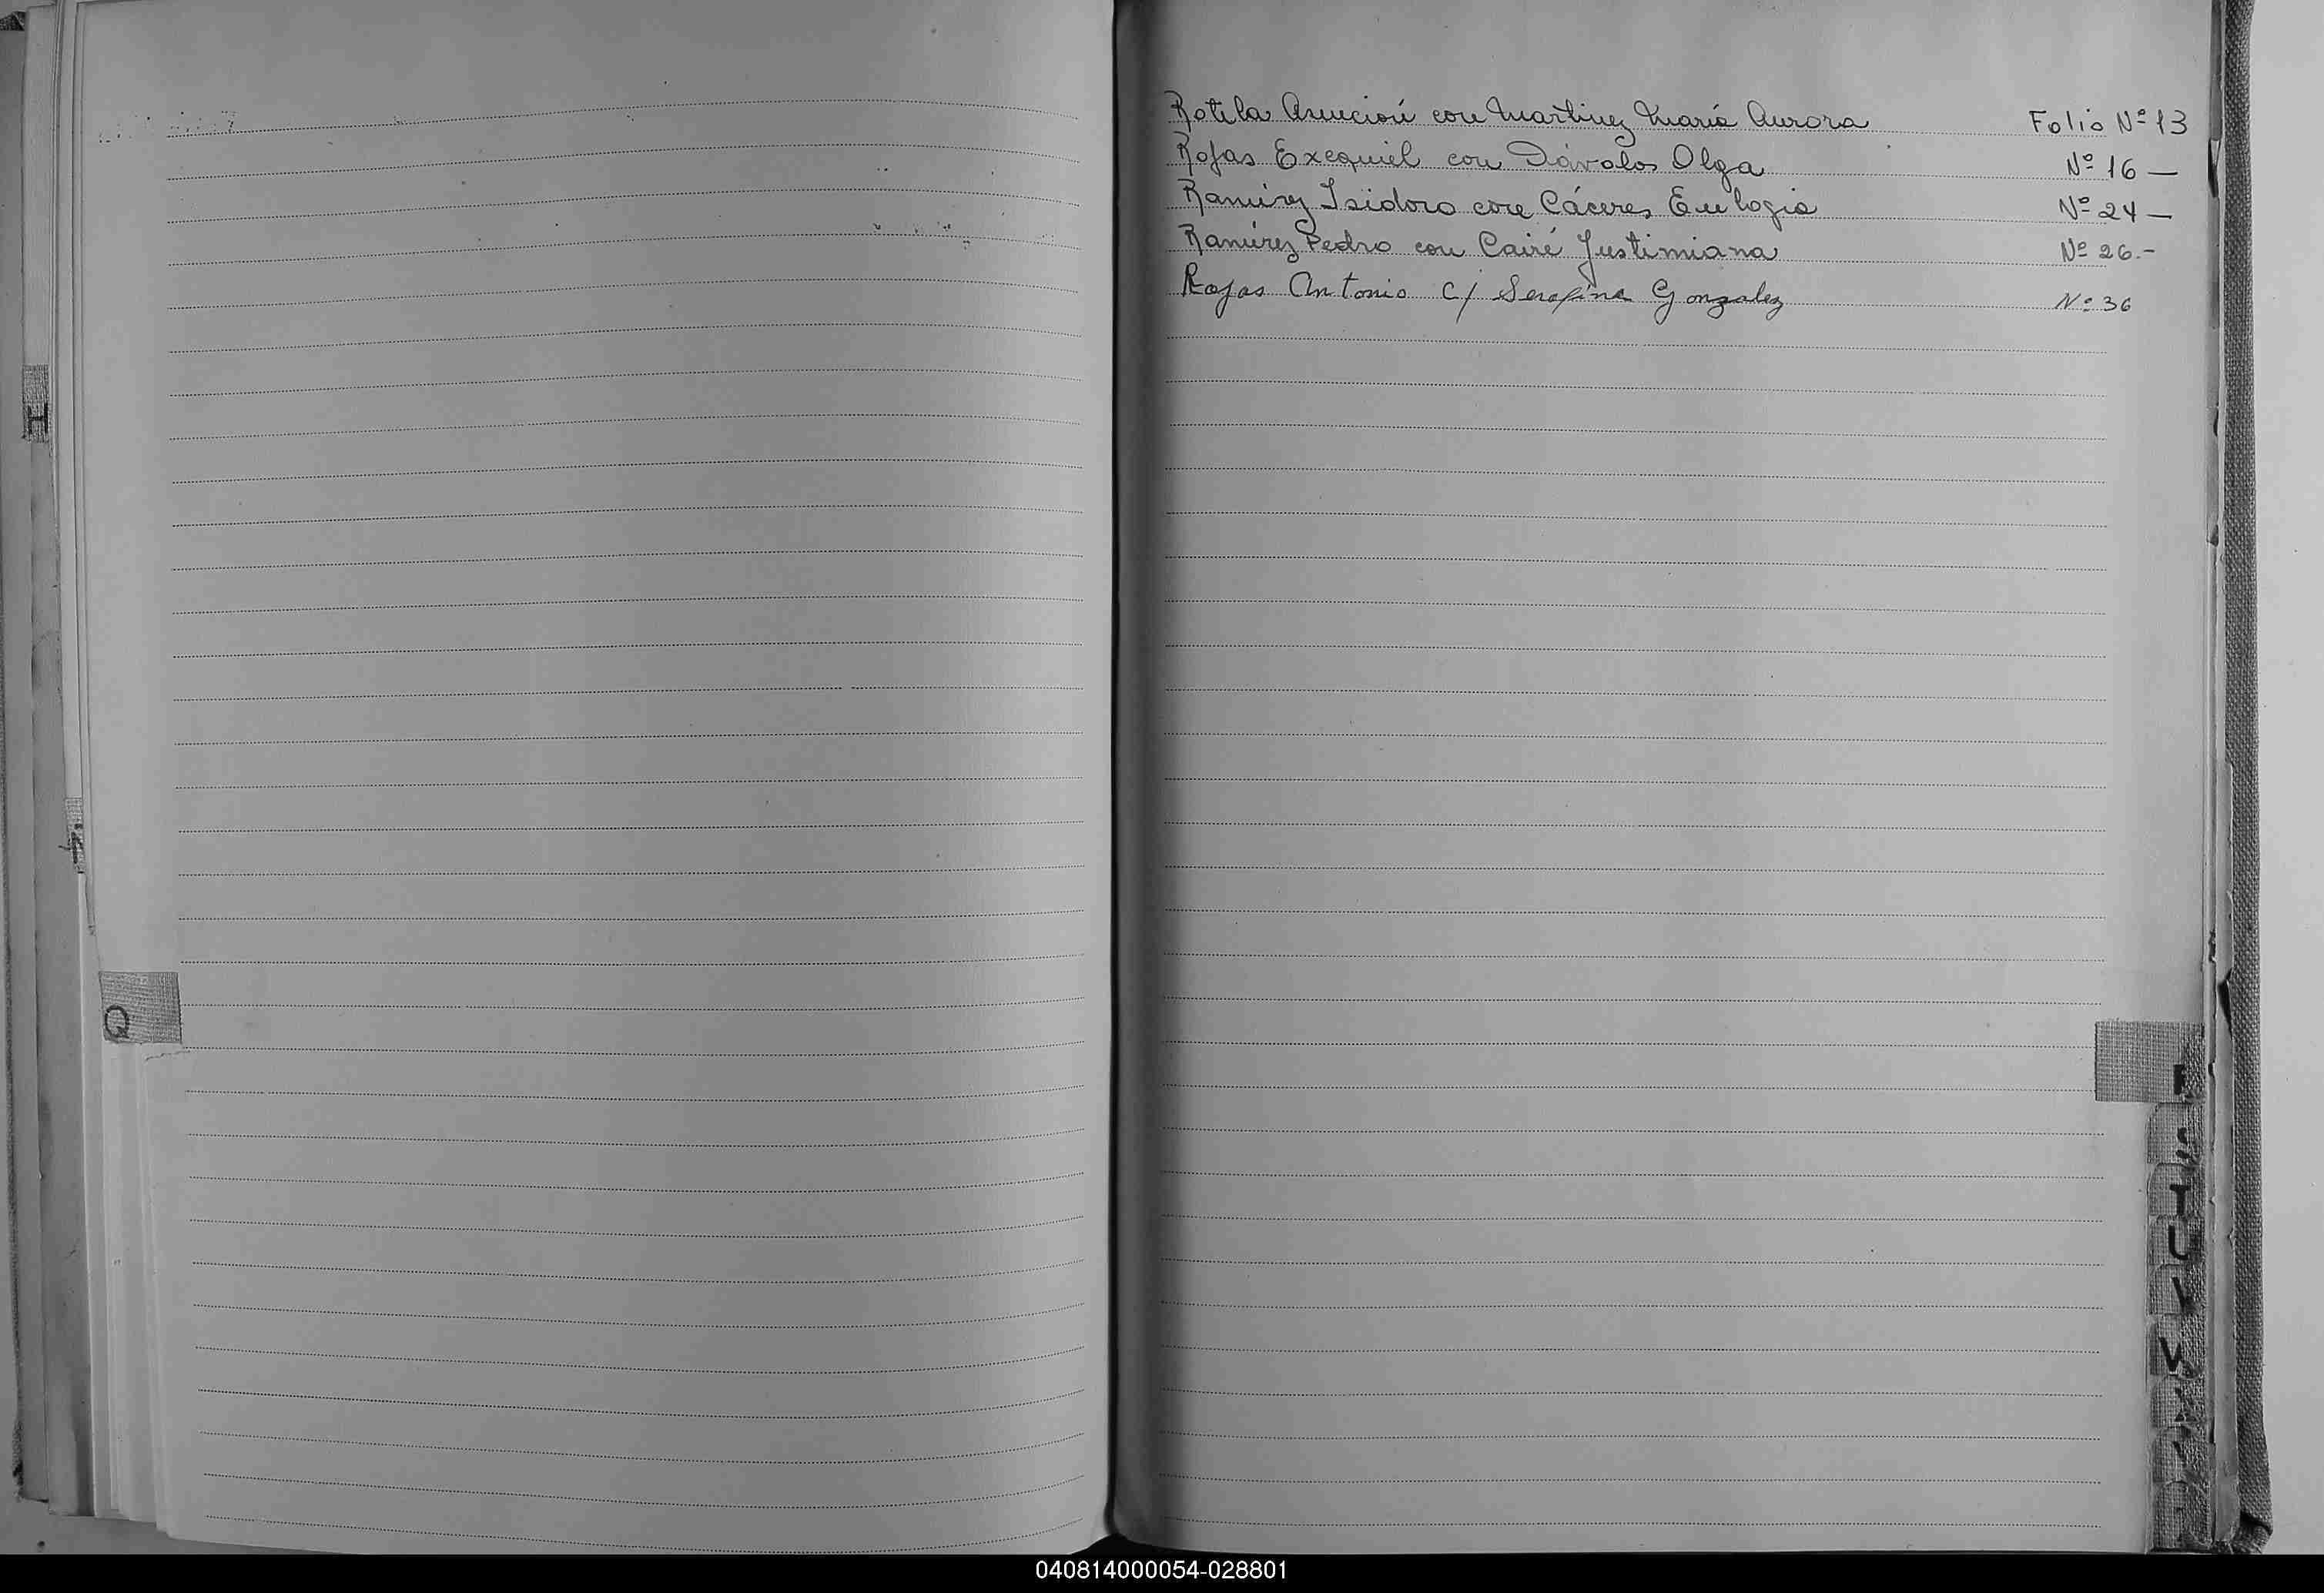 Rotela Asunción con Martínez María Aurora Folio Nº 13
Rojas Exequiel con Dávalos Olga Nº 16 —
Ramírez Isidoro con Cáceres Eulogia Nº 24 —
Ramírez Pedro con Cairé Justimiana Nº 26.-
Rojas Antonio c/ Serafina Gonzalez Nº 36
H
Q
S
T
U
V
040814000054-028801